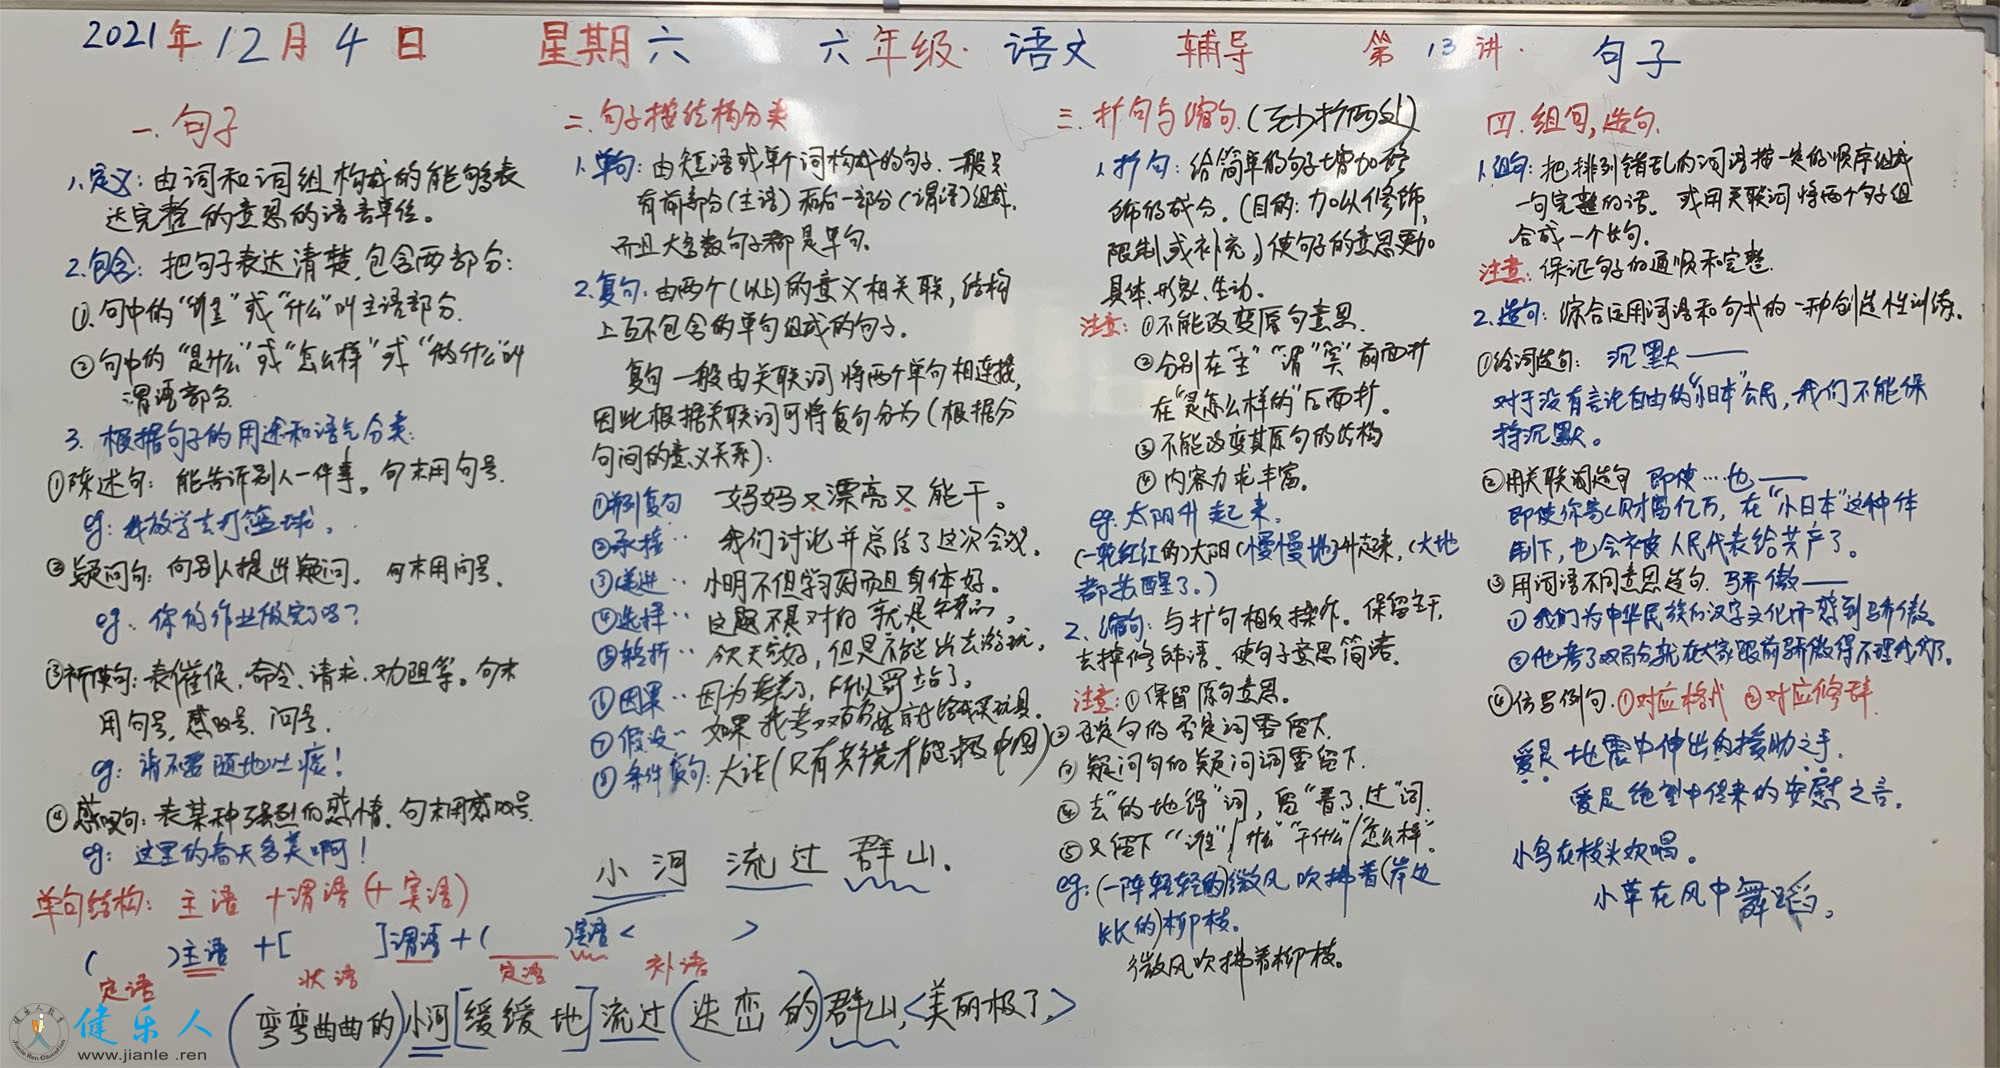 2021年12月4日 星期六 六年级·语文 辅导 第13讲· 句子
一.句子
1.定义:由词和词组构成的能够表
达完整的意思的语言单位。
2.包含:把句子表达清楚,包含两部分:
①.句中的“谁”或“什么”叫主语部分.
②句中的“是什么”或“怎么样”或“做什么”叫
谓语部分.
3.根据句子的用途和语气分类:
①陈述句:能告诉别人一件事。句末用句号.
eg:我放学去打篮球。
②疑问句:向别人提出疑问.句末用问号.
eg:你的作业做完了吗?
③祈使句:表催促、命令、请求、劝阻等。句末
用句号,感叹号、问号.
eg:请不要随地吐痰!
④感叹句:表某种强烈的感情.句末用感叹号.
eg:这里的春天多美啊!
单句结构:主语+谓语(+宾语)
( )主语+[ ]谓语+( )宾语< >
定语 状语 定语 补语
(弯弯曲曲的)小河[缓缓地]流过(迭峦的)群山,<美丽极了.>
二.句子按结构分类
1.单句:由短语或单个词构成的句子.一般只
有前部分(主语)和后一部分(谓语)组成.
而且大多数句子都是单句.
2.复句:由两个(以上)的意义相关联,结构
上互不包含的单句组成的句子.
复句一般由关联词将两个单句相连接,
因此根据关联词可将复句分为(根据分
句间的意义关系):
①并列复句 妈妈又漂亮又能干。
②承接·· 我们讨论并总结了这次会议.
③递进·· 小明不但学习好而且身体好。
④选择·· 这题不是对的就是错的。
⑤转折·· 今天气好,但是不能出去游玩.
⑥因果·· 因为迟到了,所以罚站了。
⑦假设·· 如果我考双百爸爸就给我买玩具.
⑧条件复句:大话(只有共党才能拯救中国)
小河流过群山.
三.扩句与缩句.(至少扩两处)
1.扩句:给简单的句子增加修
饰的成分.(目的:加以修饰,
限制,或补充,)使句子的意思更加
具体、形象、生动。
注意:①不能改变原句意思.
②分别在“主”“谓”“宾”前面扩
在“是怎么样的”后面扩。
③不能改变其原句的结构
④内容力求丰富。
eg.太阳升起来.
(一轮红红的)太阳(慢慢地)升起来,(大地
都苏醒了。)
2.缩句:与扩句相反操作.保留主干,
去掉修饰语.使句子意思简洁.
注意:①保留原句意思.
②否定句的否定词要留下.
③疑问句的疑问词要留下.
④去“的地得”词,留“着了过”词.
⑤只留下“谁”/什么“干什么”/“怎么样”.
eg:(一阵轻轻的)微风吹拂着(岸边
长长的)柳枝。
微风吹拂着柳枝。
四.组句,造句.
1.组句:把排列错乱的词语按一定的顺序组成
一句完整的话。或用关联词将两个句子组
合成一个长句.
注意:保证句子的通顺和完整.
2.造句:综合运用词语和句式的一种创造性训练.
①给词造句:沉默——
对于没有言论自由的“小日本”公民,我们不能保
持沉默。
②用关联词造句 即使…也——
即使你家财富亿万,在“小日本”这种体
制下,也会被人民代表给共产了。
③用词语不同意思造句.骄傲——
①我们为中华民族的汉字文化而感到骄傲.
②他考了双百分就在大家跟前骄傲得不理我们了.
④仿写例句.①对应格式 ②对应修辞.
爱是地震中伸出的援助之手.
爱是绝望中传来的安慰之言.
小鸟在枝头欢唱。
小草在风中舞蹈。
健乐人教育
Jianle Ren Education
健乐人
www.jianle.ren